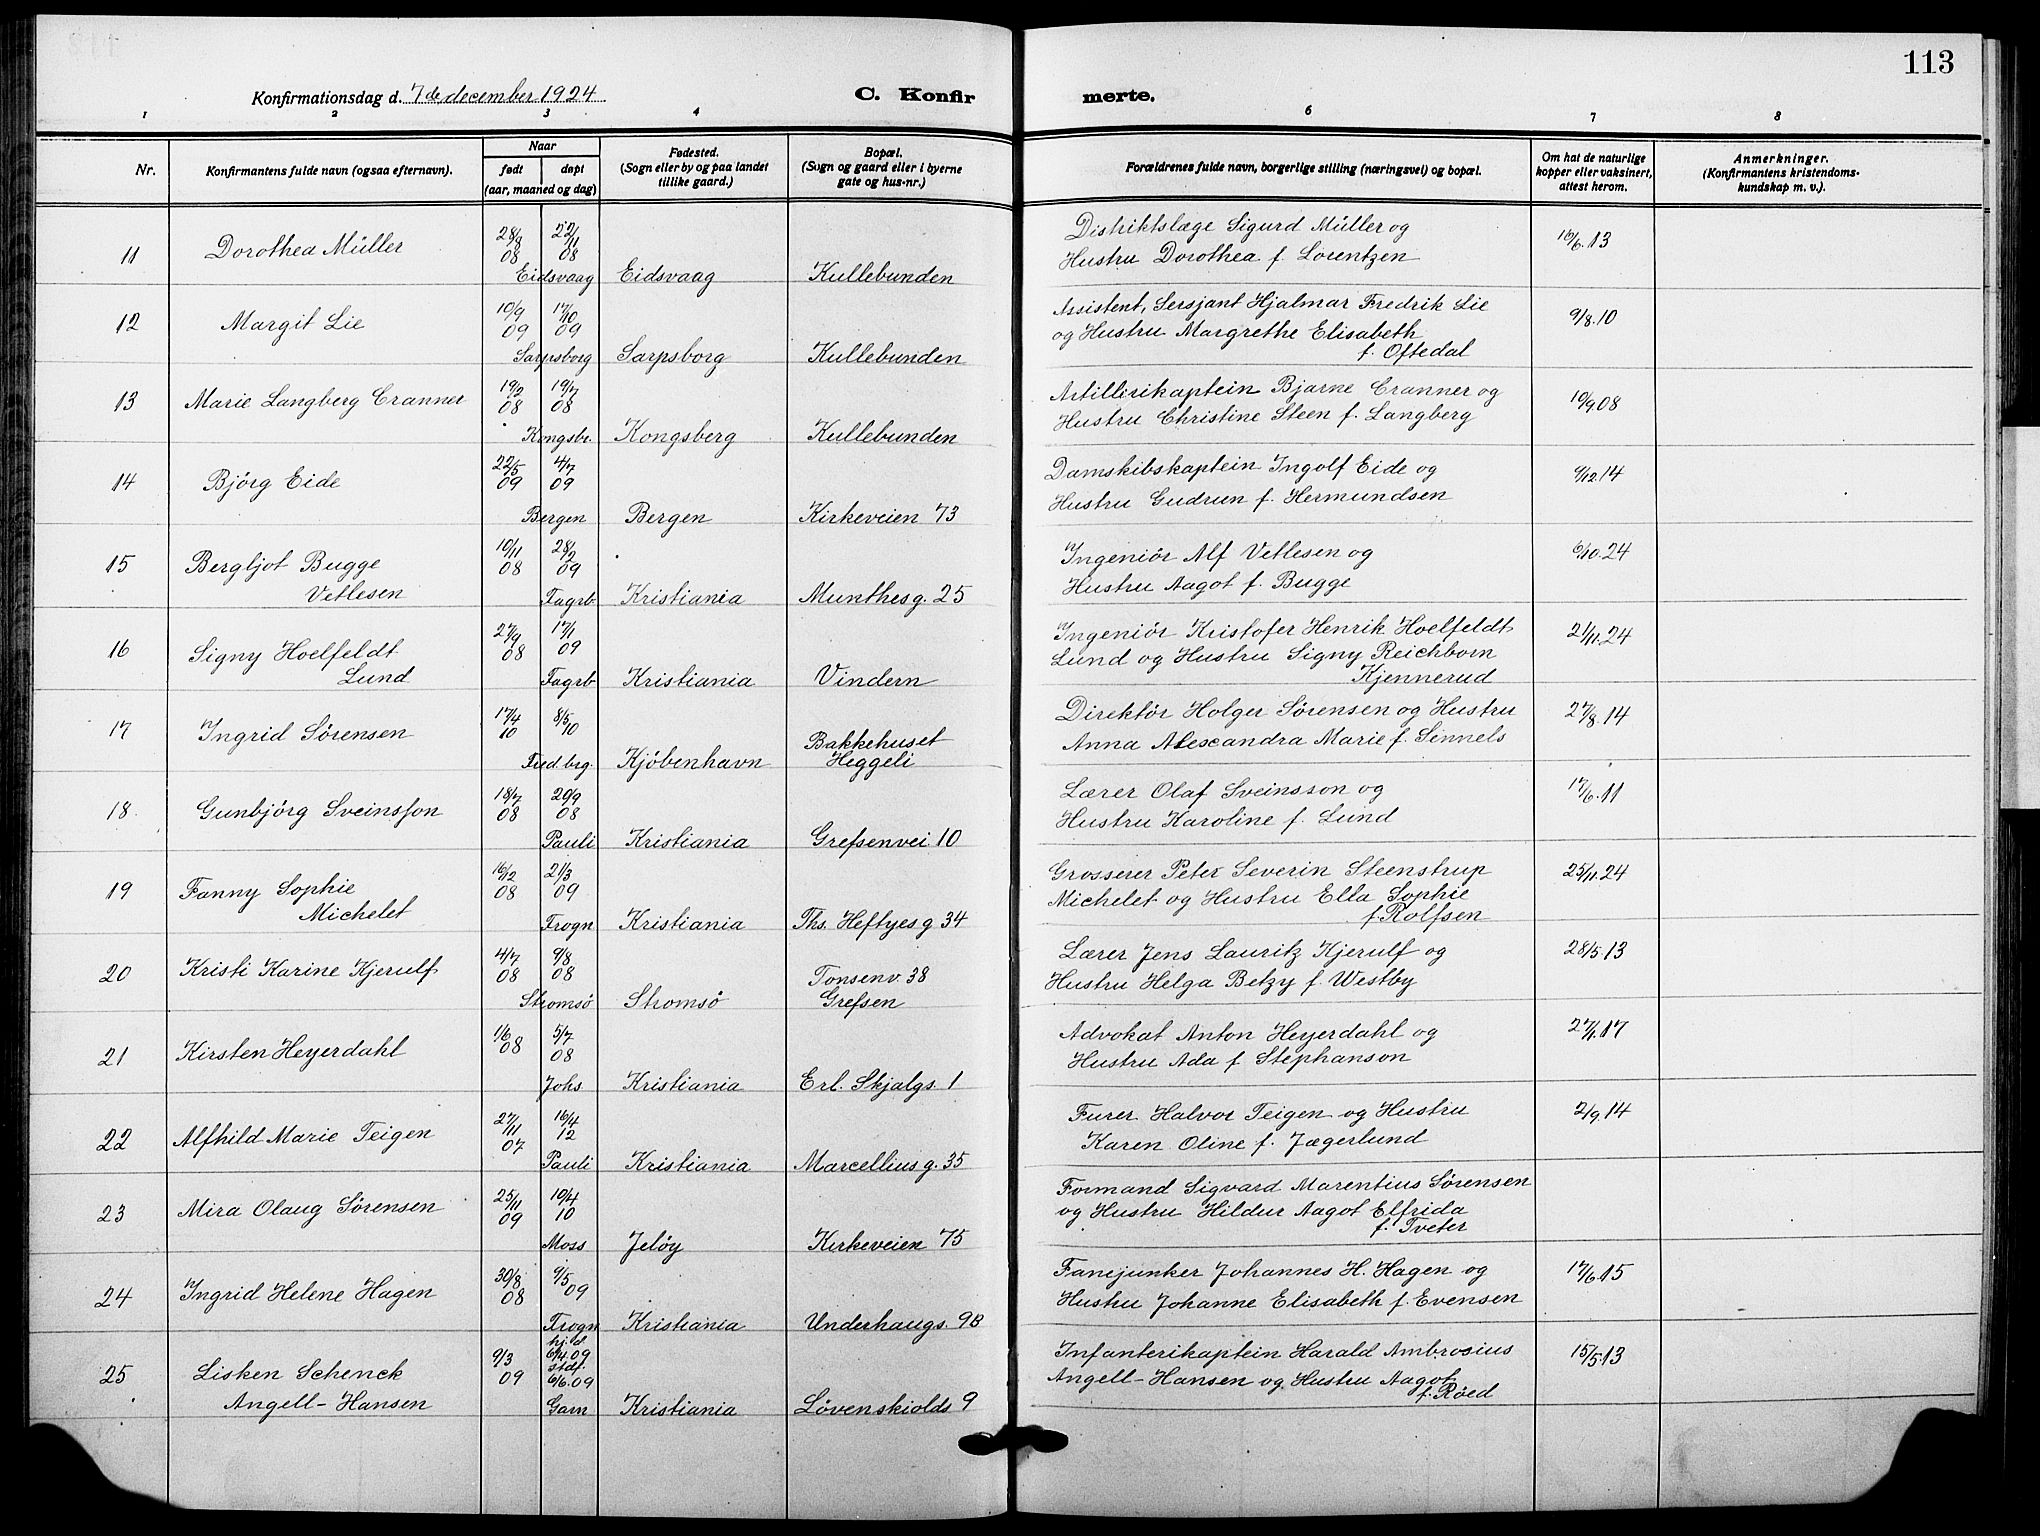 113
Konfirmationsdag d. 7de december 1924
C. Konfir
merte.
1 2 3 4 5 6 7 8
Nr.
Konfirmantens fulde navn (ogsaa efternavn).
Naar
født døpt
(aar, maaned og dag)
Fødested.
(Sogn eller by og paa landet
tillike gaard.)
Bopæl.
(Sogn og gaard eller i byerne
gate og hus-nr.)
Forældrenes fulde navn, borgerlige stilling (næringsvei) og bopæl.
Om hat de naturlige
kopper eller vaksinert,
attest herom.
Anmerkninger.
(Konfirmantens kristendoms-
kundskap m. v.).
11 Dorothea Müller 28/8 08 22/11 08 Eidsvaag Eidsvaag Kullebunden
Distriktslæge Sigurd Müller og
Hustru Dorothea f. Lorentzen
16/6.13
12 Margit Lie 10/9 09 17/10 09 Sarpsborg Sarpsborg Kullebunden
Assistent, Sersjant Hjalmar Fredrik Lie
og Hustru Margrethe Elisabeth
f. Oftedal
9/8.10
13 Marie Langberg Cranner 19/2 08 19/7 08 Kongsbr. Kongsberg Kullebunden
Artillirikaptein Bjarne Cranner og
Hustru Christine Steen f. Langberg
10/9 08
14 Björg Eide 22/5 09 4/7 09 Bergen Bergen Kirkeveien 73
Damskibskaptein Ingolf Eide og
Hustru Gudrun f. Hermundsen
9/12.14
15 Bergljot Bugge
Vetlesen 10/11 08 28/2 09 Fagrb Kristiania Munthesg. 25
Ingeniör Alf Vetlesen og
Hustru Aagot f. Bugge
6/10.24
16 Signy Hoelfeldt
Lund 27/9 08 17/1 09 Fagrb Kristiania Vindern
Ingeniör Kristofer Henrik Hoelfeldt
Lund og Hustru Signy Reichborn
Kjennerud
21/11.24
17 Ingrid Sörensen 17/4 10 8/5 10 Fred.brg. Kjöbenhavn Bakkehuset
Heggeli
Direktör Holger Sörensen og Hustru
Anna Alexandra Marie f. Sinnels
27/8.14
18 Gunbjörg Sveinsson 18/7 08 20/9 08 Pauli Kristiania Grefsenvei. 10
Lærer Olaf Sveinsson og
Hustru Karoline f. Lund
17/6.11
19 Fanny Sophie
Michelet 16/12 08 21/3 09 Frogn Kristiania Ths. Heftyes g 34
Grosserer Peter Severin Steenstrup
Michelet og Hustru Ella Sophie
f. Rolfsen
25/11.24
20 Kristi Karine Kjerulf 4/7 08 9/8 08 Strømsö Strømsö Tonsenv. 38
Grefsen
Lærer Jens Lauritz Kjerulf og
Hustru Helga Betzy f. Westby
28/5.13
21 Kirsten Heyerdahl 1/6 08 5/7 08 Johs Kristiania Erl. Skjalgs. 1
Advokat Anton Heyerdahl og
Hustru Ada f Stephanson
27/1.17
22 Alfhild Marie Teigen 27/11 07 16/4 12 Pauli Kristiania Marcelliusg. 35
Furer Halvor Teigen og Hustru
Karen Oline f. Jægerlund
2/9.14
23 Mira Olaug Sörensen 25/11 09 10/4 10 Moss Jelöy Kirkeveien 75
Formand Sigvard Marentius Sörensen
og Hustru Hildur Aagot Elfrida
f. Tveter
24 Ingrid Helene Hagen 30/8 08 9/5 09 Frogn Kristiania Underhaugs. 9B
Fanejunker Johannes H. Hagen og
Hustru Johanne Elisabeth f. Evensen
17/6.15
25 Lisken Schenck
Angell-Hansen 9/3 09 hjd. 6/4.09 stdf. 6/6.09 Garn Kristiania Lövenskiolds 9
Infanterikaptein Harald Ambrosius
Angell-Hansen og Hustru Aagot
f. Röed
15/5.13